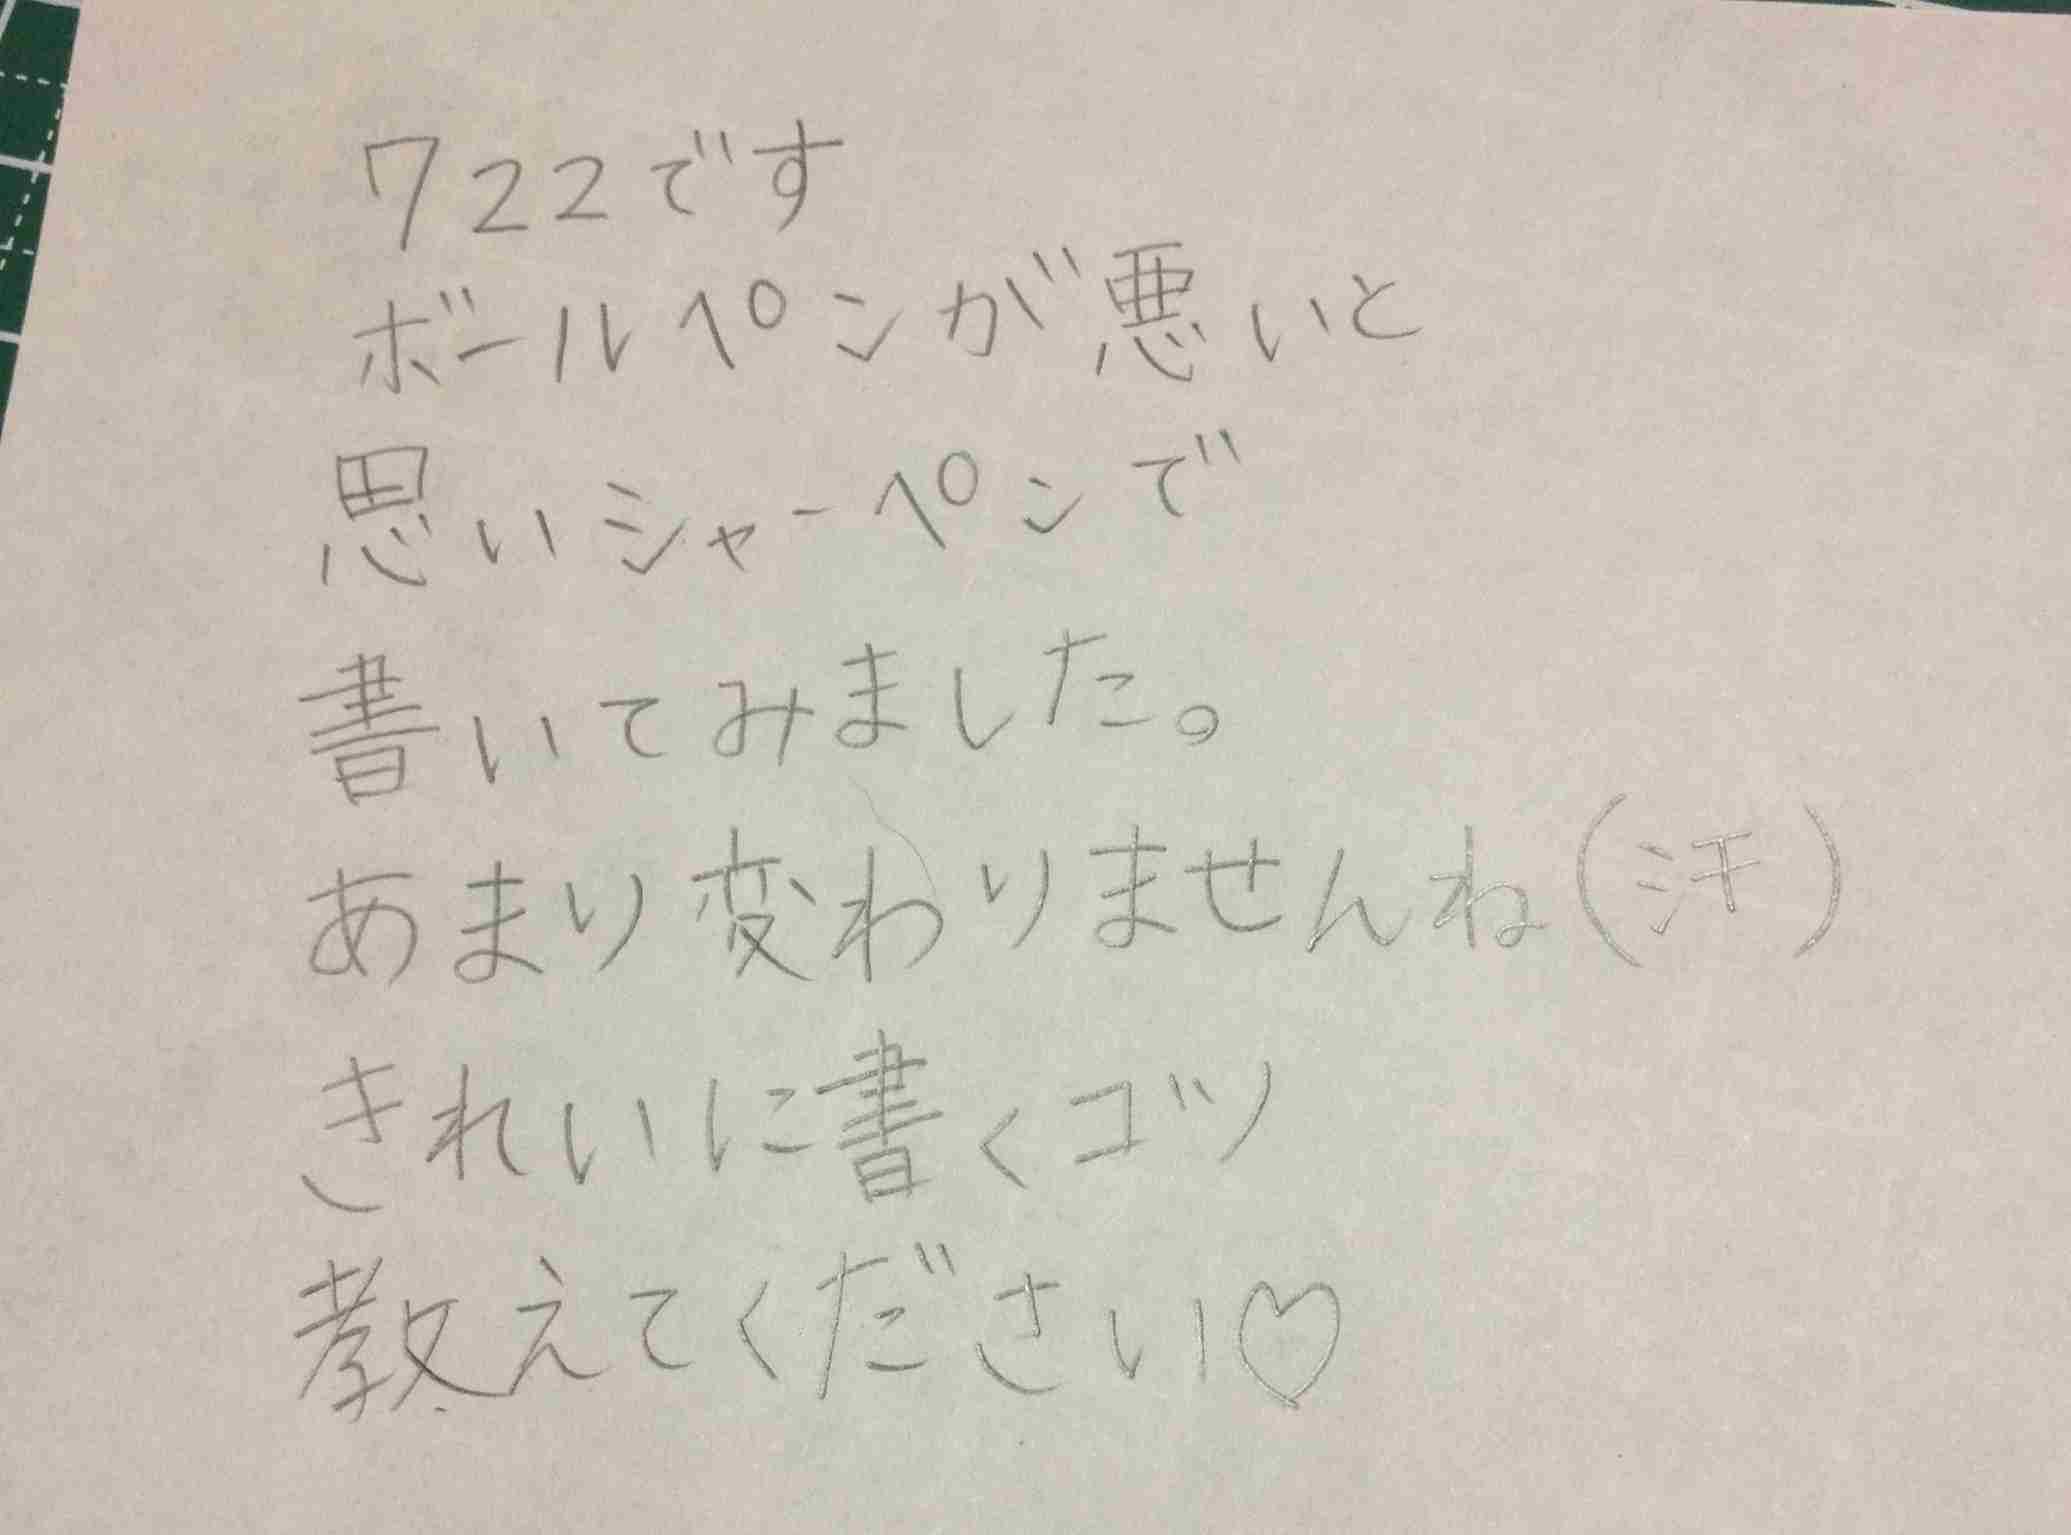 722です
ボールペンが悪いと
思いシャーペンで
書いてみました。
あまり変わりませんね(汗)
きれいに書くコツ
教えてください♡